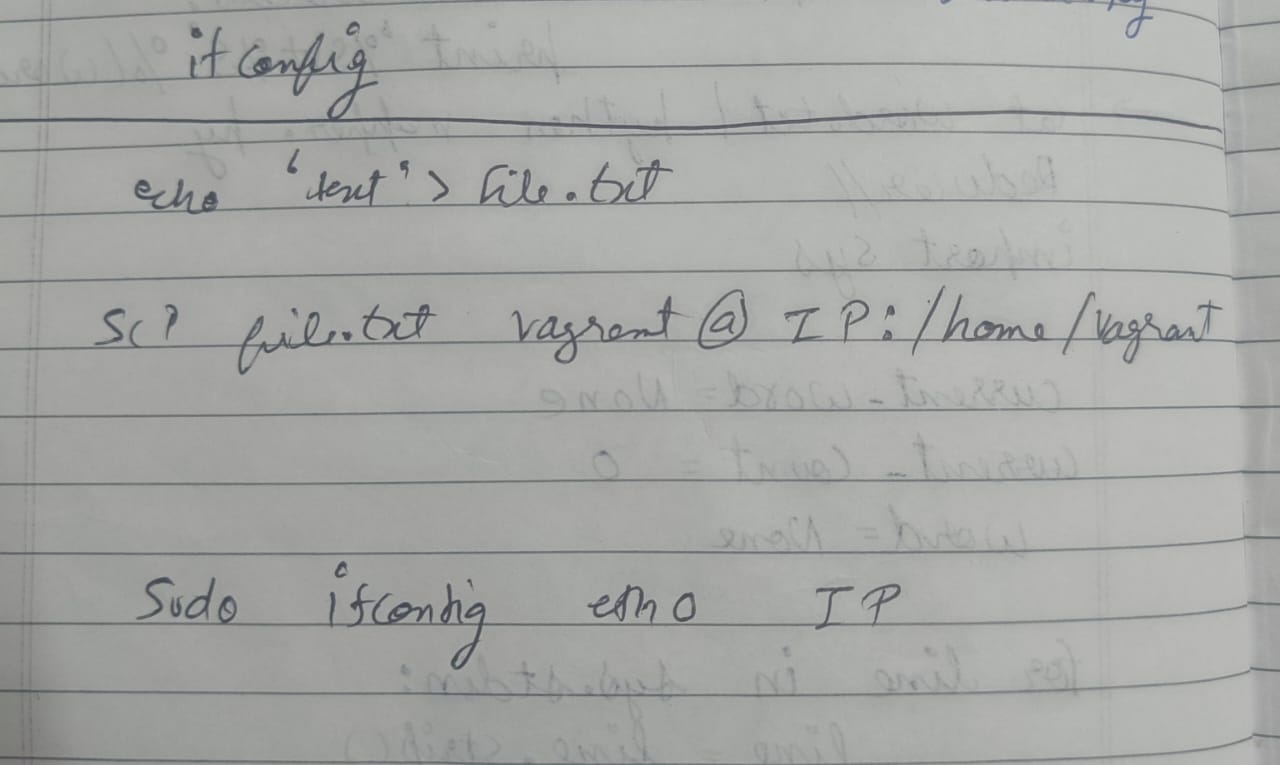 ifconfig
echo 'text' > file.txt
SCP file.txt vagrant @ IP:/home/vagrant
Sudo ifconfig eth0 IP